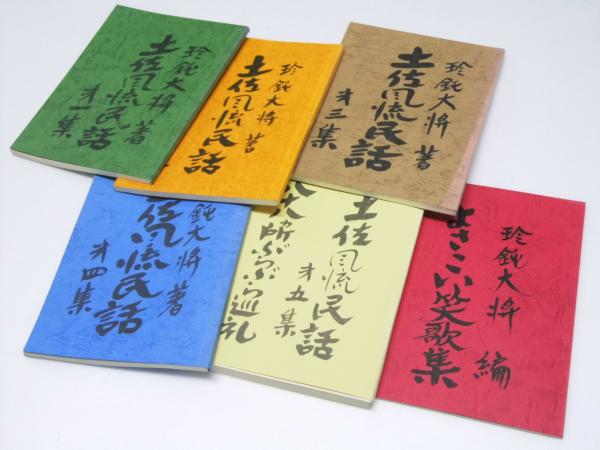 珍鈍大将 著
土佐風流民話
才一集
珍鈍大将 著
土佐風流民話
珍鈍大将 著
土佐風流民話
才三集
鈍大将 著
佐風流民話
才四集
土佐風流民話
才五集
ぶらぶら巡礼
珍鈍大将 編
よさこい笑歌集